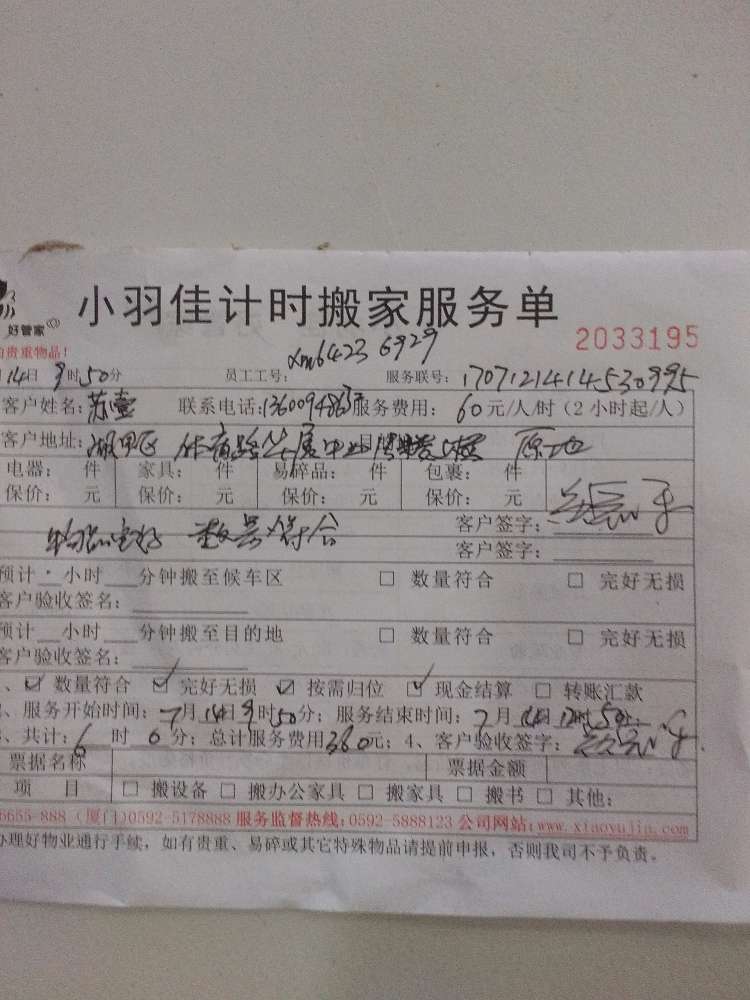 小羽佳计时搬家服务单
好管家
2033195
的贵重物品！
xm6423 6929
月14日9时50分 员工工号： 服务联号：1707121414530995
客户姓名：苏 联系电话： 服务费用：60元/人/时（2小时起/人）
客户地址： 原地
电器： 件 家具： 件 易碎品： 件 包裹： 件
保价： 元 保价： 元 保价： 元 保价： 元
客户签字：
物品完好 数量符合
客户签字：
预计 小时 分钟搬至候车区 □ 数量符合 □ 完好无损
客户验收签名：
预计 小时 分钟搬至目的地 □ 数量符合 □ 完好无损
客户验收签名：
、☑ 数量符合 ☑ 完好无损 ☑ 按需归位 ☑ 现金结算 □ 转账汇款
、服务开始时间：7月14日9时50分；服务结束时间：7月14日12时50分
、共计：6时0分；总计服务费用360元；4、客户验收签字：
票据名称 票据金额
项 目 □ 搬设备 □ 搬办公家具 □ 搬家具 □ 搬书 □ 其他：
6655-888（厦门）0592-5178888 服务监督热线：0592-5888123 公司网站：www.xiaoyujia.com
办理好物业通行手续，如有贵重、易碎或其它特殊物品请提前申报，否则我司不予负责。